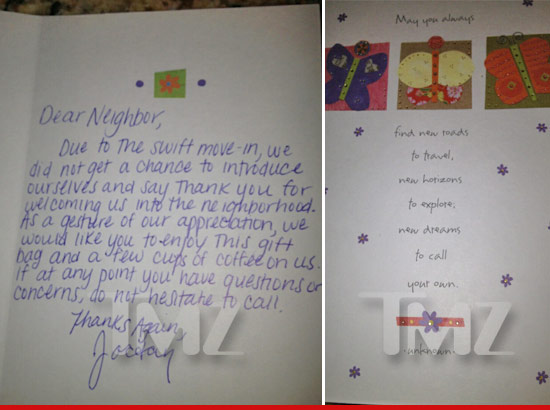 Dear Neighbor,
Due to the swift move-in, we
did not get a chance to introduce
ourselves and say Thank you for
welcoming us into the neighborhood.
As a gesture of our apprecation, we
would like you to enjoy This gift
bag and a few cups of coffee on us.
if at any point you have questions or
concerns, do not hesitate to call.
Thanks Again,
TMZ
May you always
TMZ
find new roads
to travel,
new horizons
to explore,
new dreams
to call
your own.
TMZ
unknown